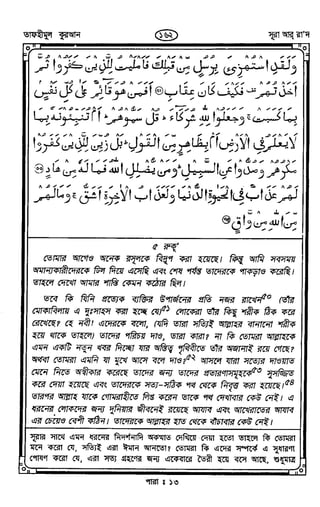 তাফহীমুল কুরআন ১৬২ সূরা আর্ রা'দ
وَلَقَدِ اسْتُهْزِئَ بِرُسُلٍ مِّنْ قَبْلِكَ فَأَمْلَيْتُ لِلَّذِينَ كَفَرُوا ثُمَّ
أَخَذْتُهُمْ فَكَيْفَ كَانَ عِقَابِ أَفَمَنْ هُوَ قَائِمٌ عَلَى كُلِّ نَفْسٍ
بِمَا كَسَبَتْ وَجَعَلُوا لِلَّهِ شُرَكَاءَ قُلْ سَمُّوهُمْ أَمْ تُنَبِّئُونَهُ بِمَا
لَا يَعْلَمُ فِي الْأَرْضِ أَمْ بِظَاهِرٍ مِّنَ الْقَوْلِ بَلْ زُيِّنَ لِلَّذِينَ كَفَرُوا
مَكْرُهُمْ وَصُدُّوا عَنِ السَّبِيلِ وَمَنْ يُضْلِلِ اللَّهُ فَمَا لَهُ مِنْ هَادٍ
لَهُمْ عَذَابٌ فِي الْحَيَاةِ الدُّنْيَا وَلَعَذَابُ الْآخِرَةِ أَشَقُّ وَمَا لَهُمْ
مِّنَ اللَّهِ مِنْ وَاقٍ
৫ রুকূ'
তোমার আগেও অনেক রসূলকে বিদ্রূপ করা হয়েছে। কিন্তু আমি সবসময়
অমান্যকারীদেরকে ঢিল দিয়ে এসেছি এবং শেষ পর্যন্ত তাদেরকে পাকড়াও করেছি।
তাহলে দেখো আমার শাস্তি কেমন কঠোর ছিল।
তবে কি যিনি প্রত্যেক ব্যক্তির উপার্জনের প্রতি নজর রাখেন (তাঁর
মোকাবিলায় এ দুঃসাহস করা হচ্ছে যে) লোকেরা তাঁর কিছু শরীক ঠিক করে
রেখেছে? হে নবী! এদেরকে বলো, (যদি তারা সত্যিই আল্লাহর বানানো শরীক
হয়ে থাকে তাহলে) তাদের পরিচয় দাও, তারা কারা? না কি তোমরা আল্লাহকে
এমন একটি নতুন খবর দিচ্ছো যার অস্তিত্ব পৃথিবীতে তাঁর অজানাই রয়ে গেছে?
অথবা তোমরা এমনি যা মুখে আসে বলে দাও? আসলে যারা সত্যের দাওয়াত
মেনে নিতে অস্বীকার করেছে তাদের জন্য তাদের প্রতারণাসমূহকে সুসজ্জিত
করে দেয়া হয়েছে এবং তাদেরকে সত্য-সঠিক পথ থেকে নিবৃত্ত করা হয়েছে।
তারপর আল্লাহ যাকে গোমরাহীতে লিপ্ত করেন তাকে পথ দেখাবার কেউ নেই। এ
ধরনের লোকদের জন্য দুনিয়ার জীবনেই রয়েছে আযাব এবং আখেরাতের আযাব
এর চেয়েও বেশী কঠিন। তাদেরকে আল্লাহর হাত থেকে বাঁচাবার কেউ নেই।
সূরার সাথে এমন ধরনের নিদর্শনাদি অকস্মাত দেখিয়ে দেয়া হতো তাহলে কি তোমরা
মনে করো যে, সত্যিই এরা ঈমান আনতো? তোমরা কি এদের সম্পর্কে এ সুধারণা
পোষণ করো যে, এরা সত্য গ্রহণের জন্য একেবারে তৈরী হয়ে বসে আছে, শুধুমাত্র
পারা : ১৩